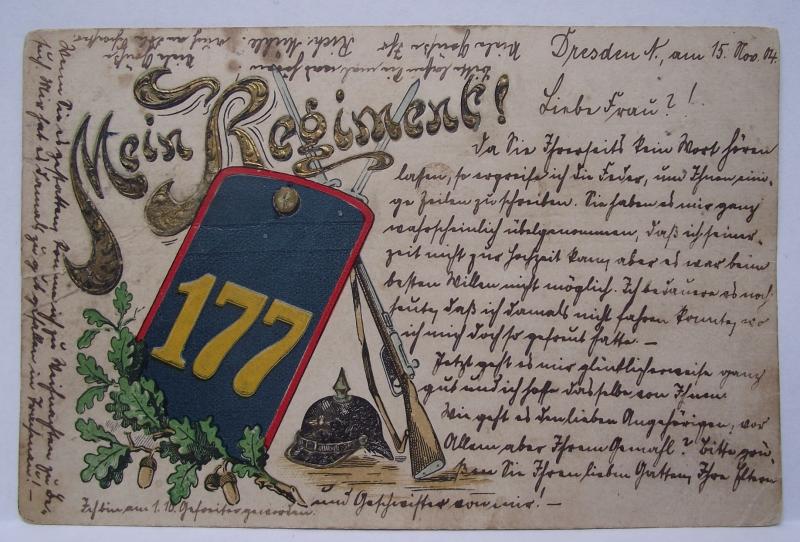 Dresden N., am 15. Nov. 04.
Liebe Frau? !
Da Sie Ihrerseits kein Wort hören
lassen, so ergreife ich die Feder, und Ihnen eini-
ge Zeilen zu schreiben. Sie haben es mir ganz
wahrscheinlich übelgenommen, daß ich seiner-
zeit nicht zur Hochzeit kam, aber es war beim
besten Willen nicht möglich. Ich bedauere es noch
heute, daß ich damals nicht fahren konnte, wo
ich mich doch so gefreut hatte. –
Jetzt geht es mir glücklicherweise ganz
gut und ich hoffe dasselbe von Ihnen.
Wie geht es den lieben Angehörigen, vor
Allem aber Ihrem Gemahl? Bitte grü-
ßen Sie Ihren lieben Gatten, Ihre Eltern
und Geschwister von mir! –
Ich bin am 1. 10. Gefreiter geworden.
Mein Regiment!
177
Wenn Sie es gestatten, komme ich zu Weihnachten zu Be-
such. Mir hat es damals zu gut gefallen in
Viele Grüße Ihr
Rich.